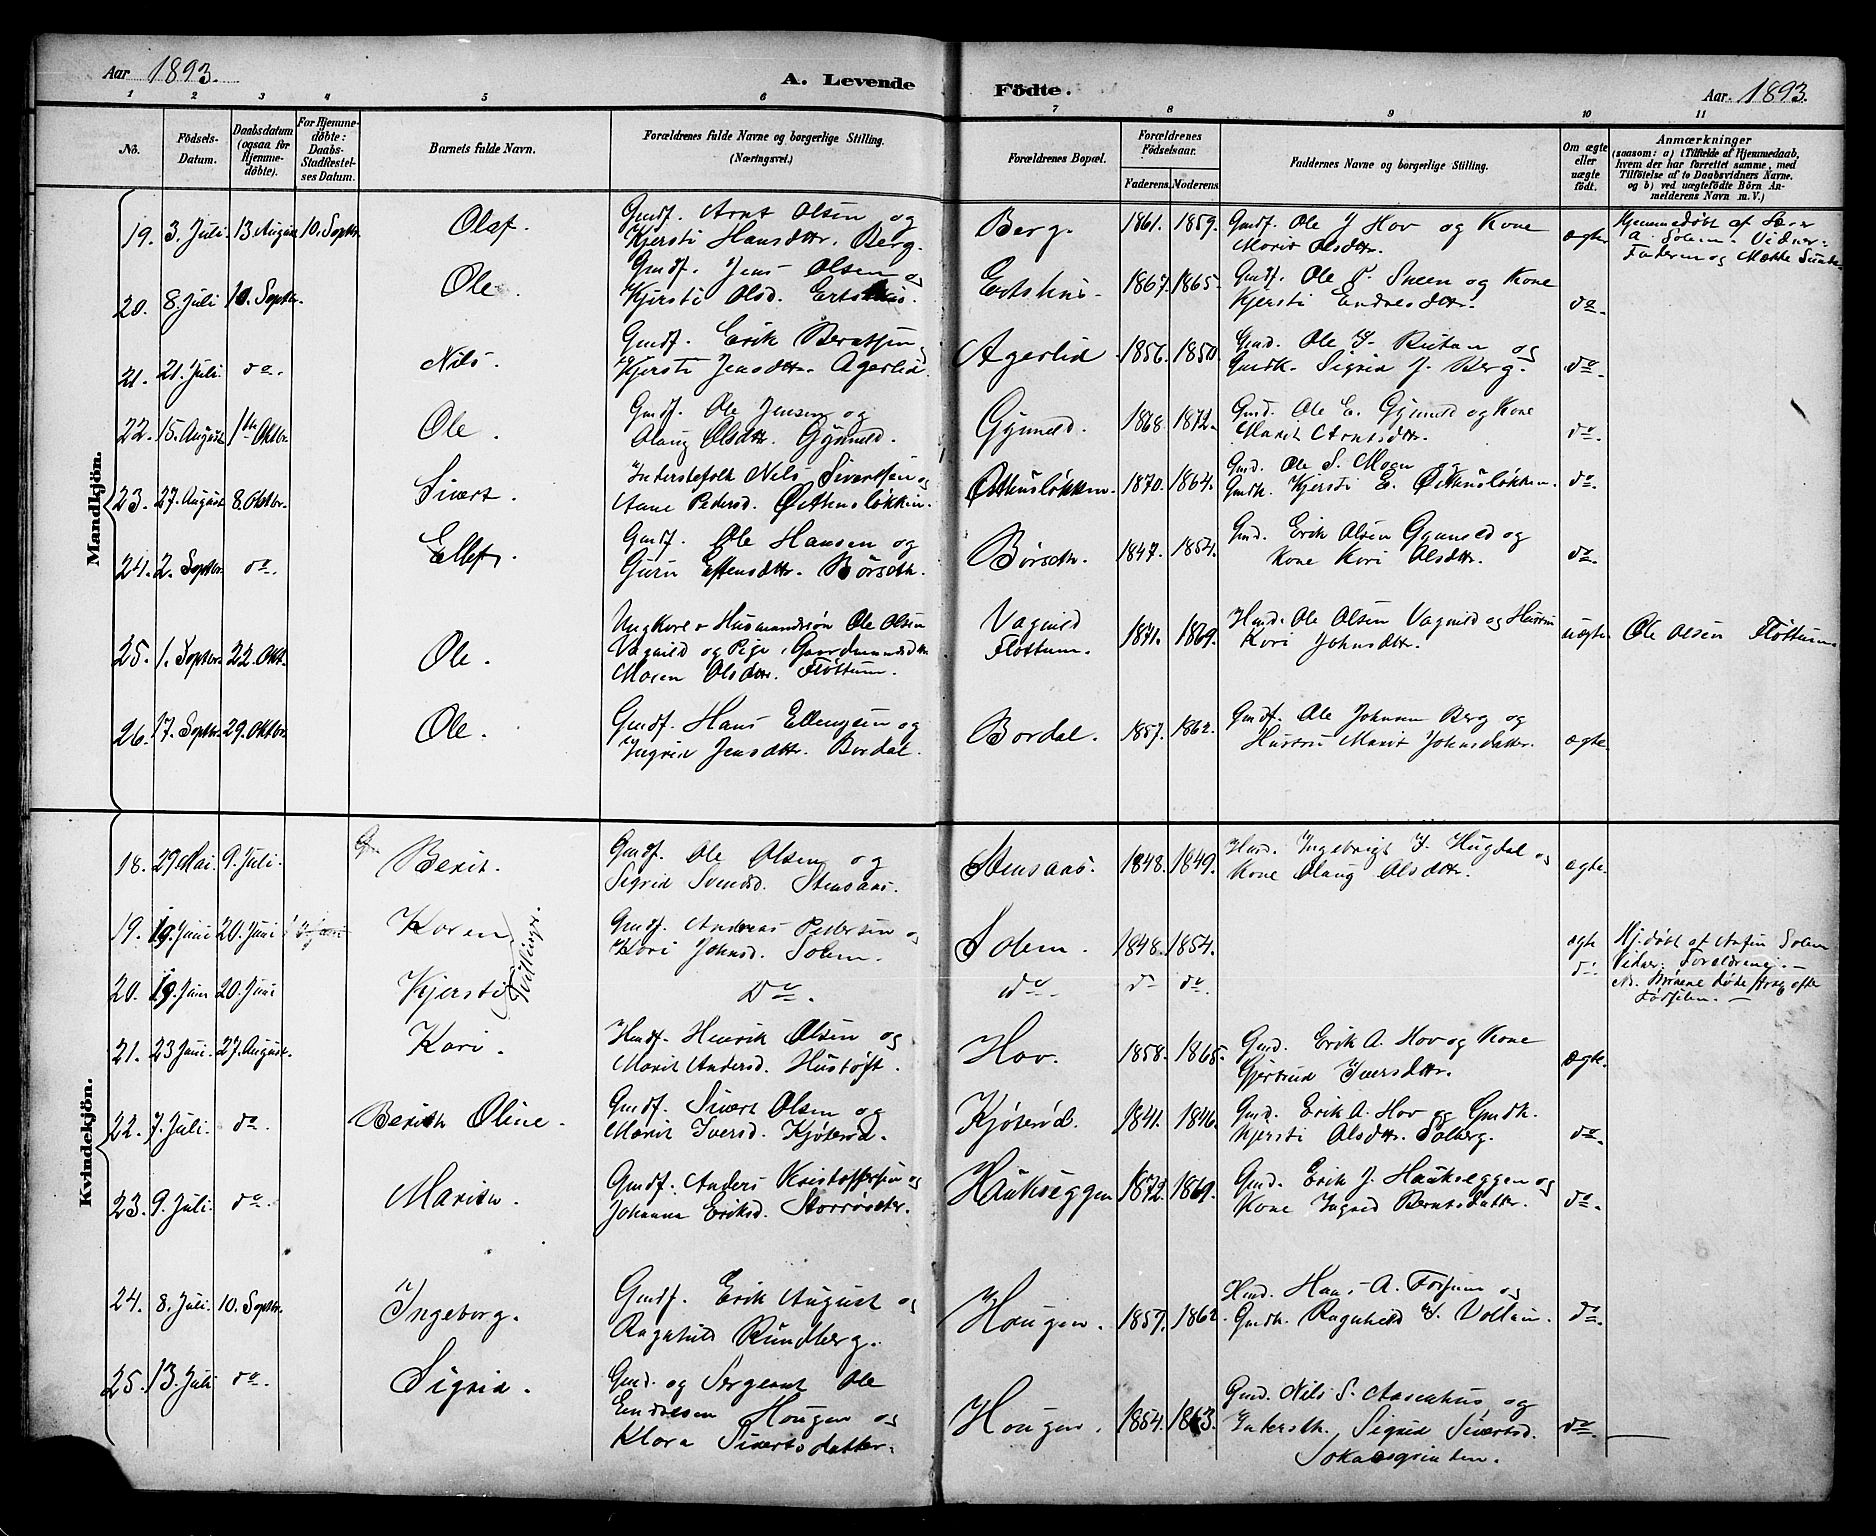 Aar 1893.
A. Levende Födte.
Aar 1893.
1 2 3 4 5 6 7 8 9 10 11
No.
Födsels-Datum.
Daabsdatum (ogsaa for Hjemme-døbte).
For Hjemme-døbte: Daabs-Stadfæstel-ses Datum.
Barnets fulde Navn.
Forældrenes fulde Navne og borgerlige Stilling. (Næringsvei.)
Forældrenes Bopæl.
Forældrenes Födselsaar.
Faderens. Moderens.
Faddernes Navne og borgerlige Stilling.
Om ægte eller uægte født.
Anmærkninger
(saasom: a) i Tilfælde af Hjemmedaab, hvem der har forrettet samme, med Tilföielse af to Daabsvidners Navne. og b) ved uægtefödte Börn An-melderens Navn m. V.)
Mandkjön.
19. 3. Juli 13 August 10. Septbr. Olaf. Gmdf. Arnt Olsen og
Kjersti Hansdttr. Berg. Berg. 1861. 1859. Gmdf. Ole J Hov og Kone
Marit Olsdttr. ægte Hjemmedøbt af
A. Solem. Vidner:
Faderen og Mette
20. 8. Juli 10. Septbr. Ole. Gmdf. Jens Olsen og
Kjersti Olsd. Ertshus. Ertshus. 1867. 1865. Gmdf. Ole P. Sneen og Kone
Kjersti Endresdttr. do.
21. 21. Juli do. Nils. Gmdf. Erik Berntsen og
Kjersti Jensdttr. Agerlid. Agerlid 1856. 1850. Gmd. Ole J. og
Gmdk. Sigrid J. Berg. do.
22. 15. August 1ste Oktbr. Ole. Gmdf. Ole Jensen og
Olaug Olsdttr. Gynneld. Gynneld. 1868. 1872. Gmd. Ole E. Gynneld og Kone
Marit Arntsdttr. do.
23. 27. August 8. Oktbr. Sivert. Inderstefolk Nils Sivertsen og
Anne Pedersd. Østhusløkken. Østhusløkken. 1870. 1864. Gmd. Ole S. Moen og
Gmdk. Kjersti E. Østhusløkken. do.
24. 2. Septbr. do. Ellef. Gmdf. Ole Hansen og
Guru Estensdttr. Børseth. Børseth. 1847. 1854. Gmd. Erik Olsen Gynneld og
Kone Kari Olsdttr. do.
25. 1. Septbr. 22. Okt. Ole. Ungkarl Husmandssøn Ole Olsen
Vagnild og Pige, Gaardmandsdtr.
Maren Olsdttr. Fløttum. Vagnild
Fløttum. 1871. 1869. Husmd. Ole Olsen Vagnild og Hustru
Kari Johnsdttr. uægte. Ole Olsen Fløttum.
26. 17. Septbr. 29. Oktbr. Ole. Gmdf. Hans Ellingsen og
Ingrid Jensdttr. Bordal. Bordal. 1857. 1862. Gmdf. Ole Johnsen Berg og
Hustru Marit Johnsdatter. ægte.
Kvindekjön.
18. 29 Mai. 9. Juli. Berit. Gmdf. Ole Olsen og
Sigrid Svendsd. Stensaas. Stensaas. 1848. 1849. Husmd. Ingebrigt J. Hugdal og
Kone Olaug Olsdttr. ægte.
19. 19. Juni 20. Juni Karen Tvillinger. Gmdf. Andreas Pedersen og
Kari Johnsd. Solem. Solem. 1848. 1854. ægte Hj.døbt af Solem
Vidner: Forældrene. —
20. 19. Juni 20. Juni Kjersti Do. do. do do. do. Nb. Børnene døde strax efter
Fødselen. —
21. 23 Juni. 27. August. Kari. Husmdf. Henrik Olsen og
Marit Andersd. Hustøft. Hov. 1858. 1865. Gmd. Erik A. Hov og Kone
Gjertrud Iversdttr. ægte.
22. 7. Juli. do. Berith Oline. Gmdf. Sivert Olsen og
Marit Iversd. Kjøterød. Kjøterød. 1841. 1846. Gmd. Erik A. Hov og Gmdk.
Kjersti Olsdttr. Solberg. do.
23. 9. Juli. do. Maren. Gmdf. Anders Kristoffersen og
Johanna Eriksd. Storrøseter. Haukseggen 1872. 1869. Gmd. Erik J. Haukseggen og
Kone Ingrid Berntsdatter. do.
24. 8. Juli. 10. Septbr. Ingeborg. Gmdf. Erik August og
Ragnhild Rundberg. Hougen. 1857. 1862. Husmd. Hans A. Forsum og
Gmdk. Ragnhild J. Vollan. do.
25. 13. Juli do. Sigrid. Gmd. og Sergeant Ole
Endresen Hougen og
Klara Sivertsdatter. Hougen. 1854. 1863. Gmd. Nils S. Aasenhus, og
Indersth. Sigrid Sivertsd.
Sokadsgrinden. do.